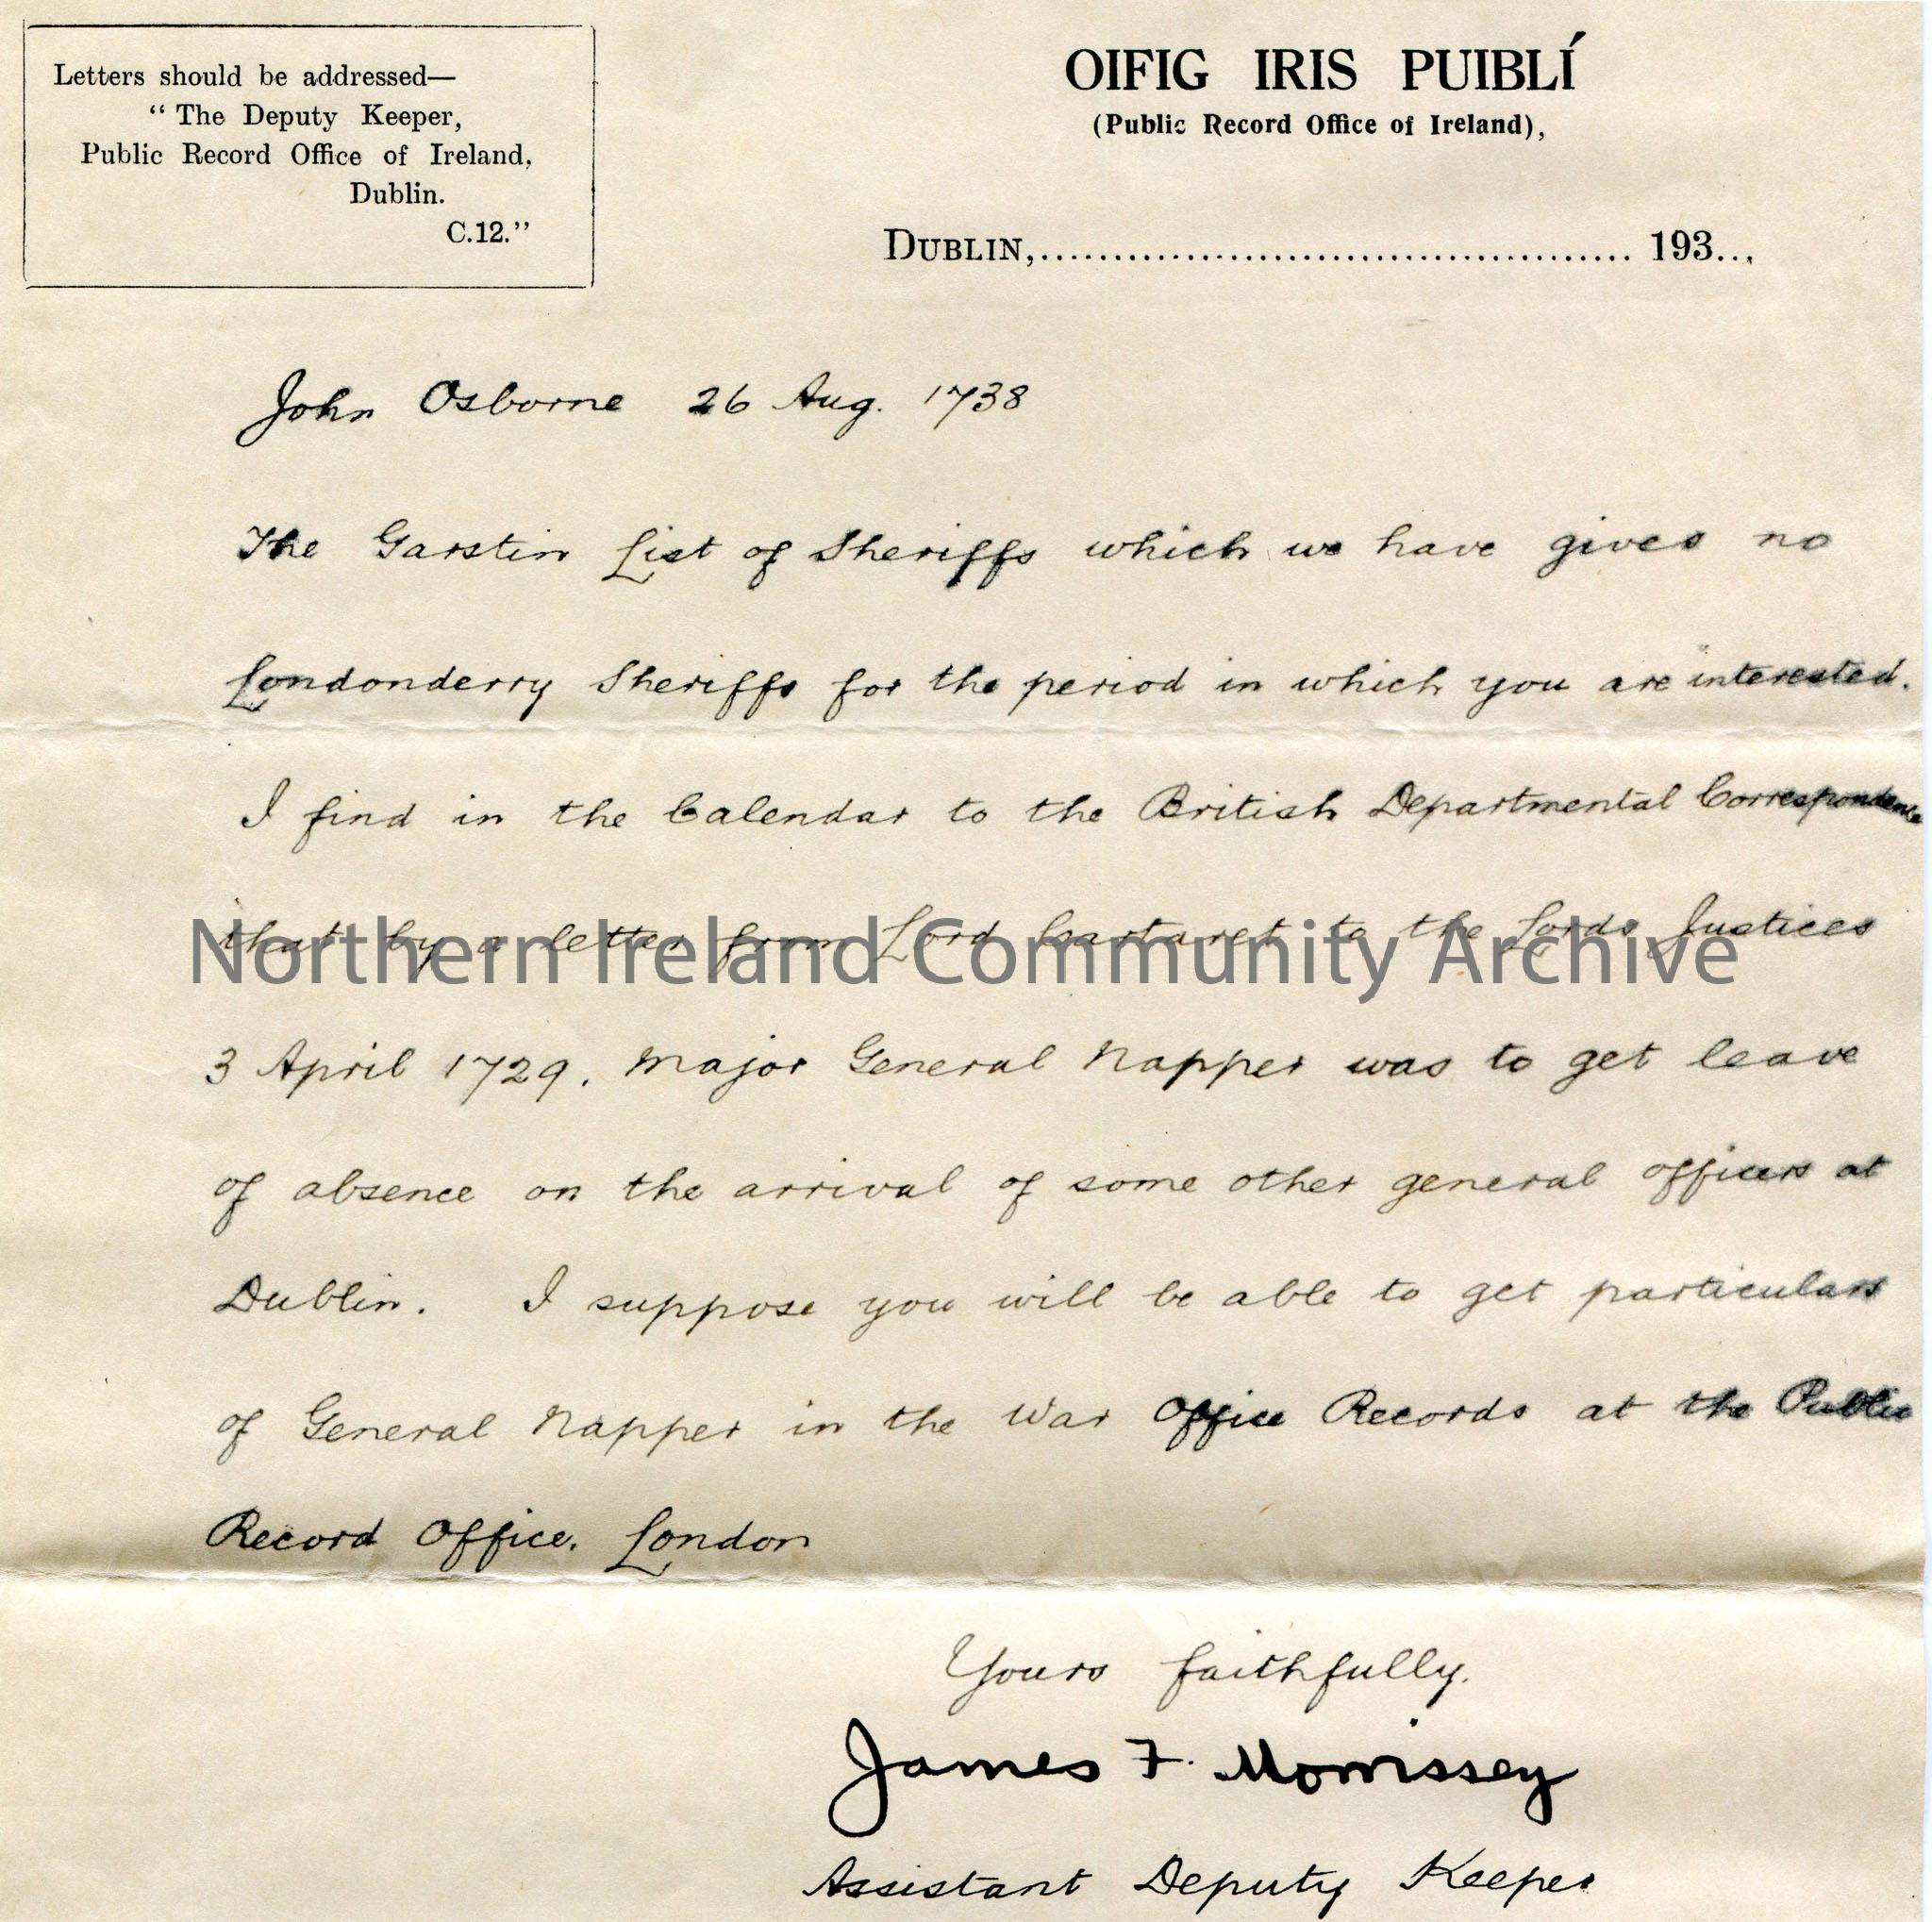 Letters should be addressed—
“ The Deputy Keeper,
Public Record Office of Ireland,
Dublin.
C.12.”
OIFIG IRIS PUIBLÍ
(Public Record Office of Ireland),
DUBLIN,.......................................... 193...
John Osborne 26 Aug. 1738
The Garstin List of Sheriffs which we have gives no
Londonderry Sheriffs for the period in which you are interested.
I find in the Calendar to the British Departmental Correspondence
that by a letter from Lord Cartaret to the Lords Justices
Northern Ireland Community Archive
3 April 1729. Major General Napper was to get leave
of absence on the arrival of some other general officers at
Dublin. I suppose you will be able to get particulars
of General Napper in the War Office Records at the Public
Record Office. London
Yours faithfully.
James F. Morrissey
Assistant Deputy Keeper